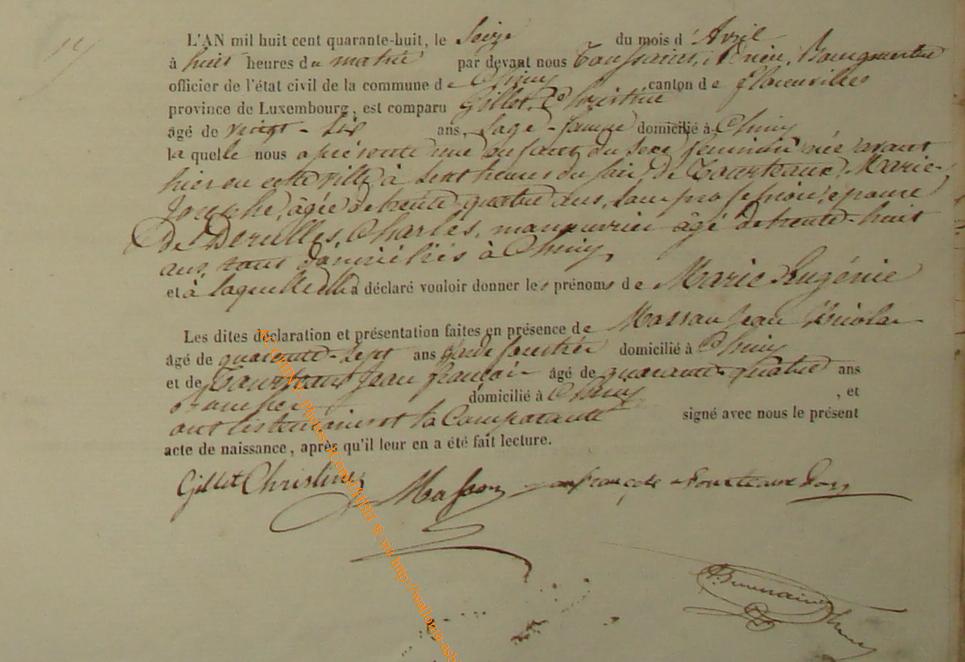 L'AN mil huit cent quarante-huit, le Seize du mois d'Avril
à huit heures du matin par devant nous Toussaint, Bourgmestre
officier de l'état civil de la commune de Chiny canton de florenville
province de Luxembourg, est comparu Gillet, Christine
âgé de vingt-six ans, sage-famme domicilié à Chiny
laquelle nous a présenté une enfant du sexe féminin née avant
hier en cette ville à sept heures du soir, de Tourteaux, Marie-
Josephe, âgée de trente quatre ans, sans profession, épouse
De Derulle, Charles, manouvrier âgé de trente-huit
ans, tous domiciliés à Chiny
et à laquelle elle a déclaré vouloir donner les prénoms de Marie Eugénie
Les dites déclaration et présentation faites en présence de Massau Jean Nicolas
âgé de quarante-sept ans garde forestier domicilié à Chiny
et de Tourteaux Jean françois âgé de quarante-quatre ans
domicilié à Chiny, et
ont les témoins et la Comparante signé avec nous le présent
acte de naissance, après qu'il leur en a été fait lecture.
Gillet Christine Masson françois Tourteaux